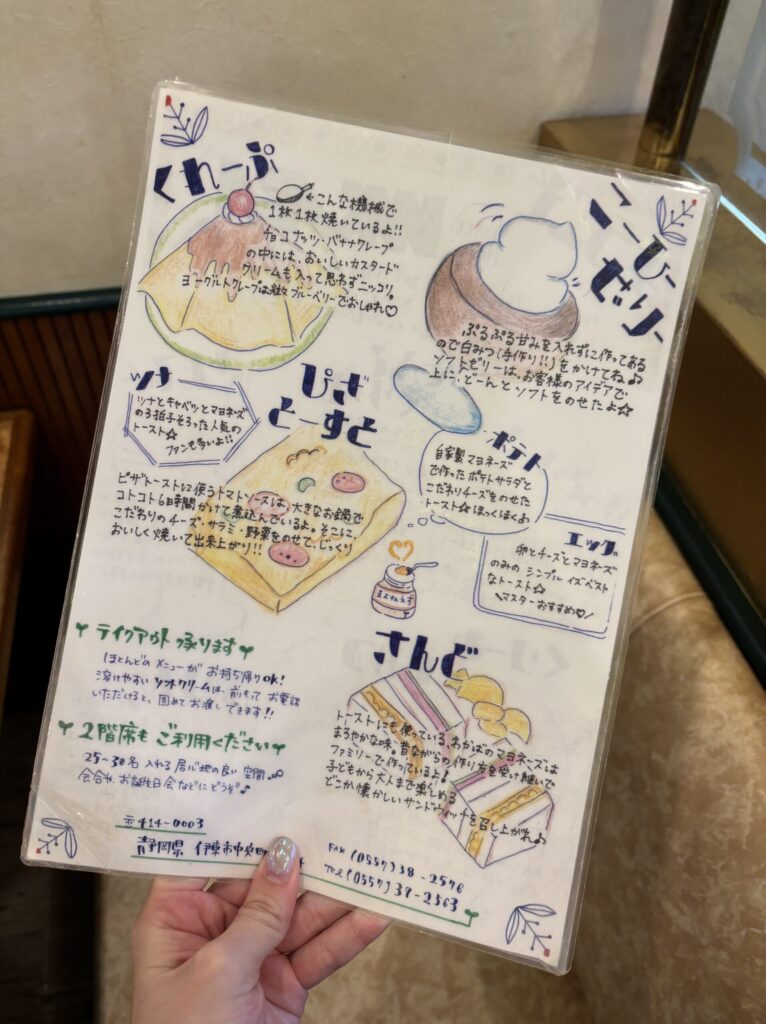 くれーぷ
←こんな機械で
1枚1枚焼いているよ!!
チョコナッツ・バナナクレープ
の中には、おいしいカスタード
クリームも入って思わずニッコリ。
ヨーグルトクレープは粒々ブルーベリーでおしゃれ♡
こーひー
ぜりー
ぷるぷる甘みを入れずに作ってある
ので白みつ(手作り!!)をかけてね♪
ソフトゼリーは、お客様のアイデアで
上に、どーんとソフトをのせたよ☆
ツナ
ツナとキャベツとマヨネーズ
の3拍子そろった人気の
トースト☆
ファンも多いよ!!
ぴざ
とーすと
ピザトーストに使うトマトソースは、大きなお鍋で
コトコト6時間かけて煮込んでいるよ。そこに、
こだわりのチーズ・サラミ・野菜をのせて、じっくり
おいしく焼いて出来上がり!!
ポテト
自家製マヨネーズ
で作ったポテトサラダと
こだわりチーズをのせた
トースト☆ほっくほくよ
エッグ
卵とチーズとマヨネーズ
のみの シンプル イズ ベスト
なトースト☆
\マスターおすすめ♡/
まよねえず
テイクアウト 承ります
ほとんどの メニューが お持ち帰りOK!
溶けやすい ソフトクリームは、前もって お電話
いただけると、固めてお渡しできます!!
2階席も ご利用ください
25〜30名 入れる 居心地の良い 空間
会合や、お誕生日会などに どうぞ♪
さんど
トーストにも使っている、わかばのマヨネーズは
まろやかな味。昔ながらの作り方を受け継いで
ファミリーで作っているよ!
子どもから大人まで楽しめる
どこか懐かしいサンドウィッチを召し上がれ♪
〒414-0003
静岡県 伊東市中央町
FAX (0557)38-2576
Tel (0557)37-2563